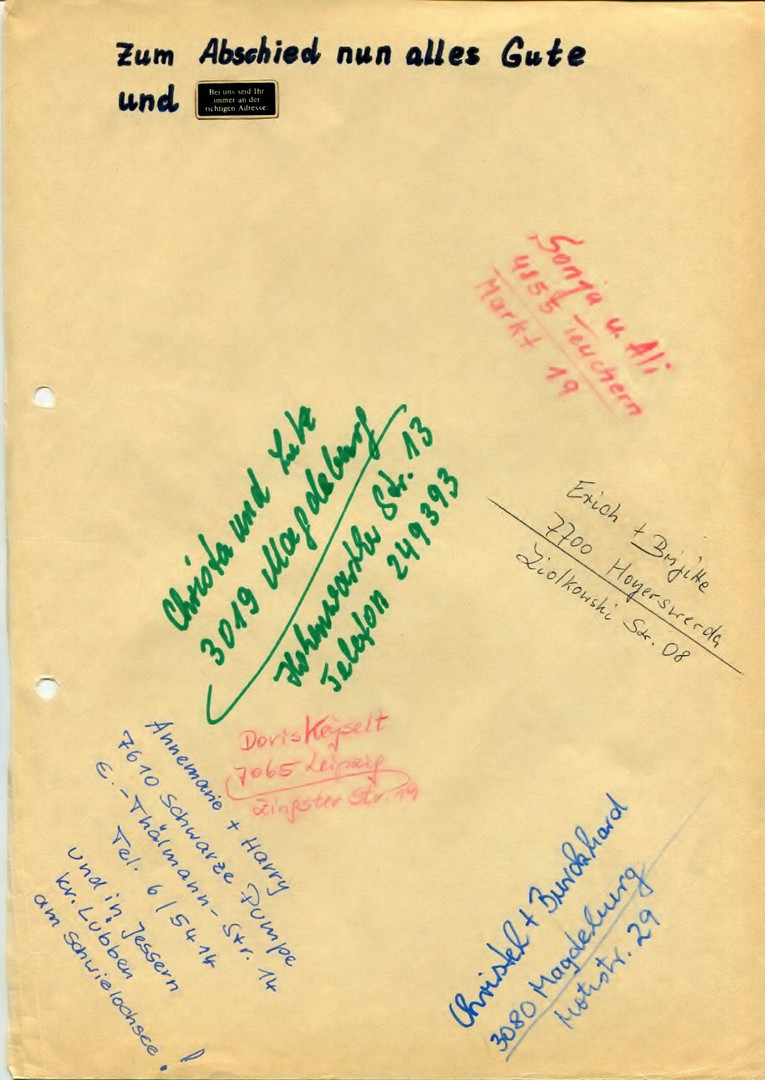 Zum Abschied nun alles Gute
und
Bei uns seid Ihr
immer an der
richtigen Adresse.
Sonja u. Ali
4855 Teuchern
Markt 19
Christa und Lutz
3019 Magdeburg
Hohenwarther Str. 13
Telefon 249393
Erich + Brigitte
7700 Hoyerswerda
Ziolkowski Str. 08
Doris Keyselt
7065 Leipzig
Zingster Str. 19
Annemarie + Harry
7610 Schwarze Pumpe
E.-Thälmann-Str. 14
Tel. 6/5414
und in Jessern
kr. Lübben
am Schwielochsee!
Christel + Burckhard
3080 Magdeburg
29